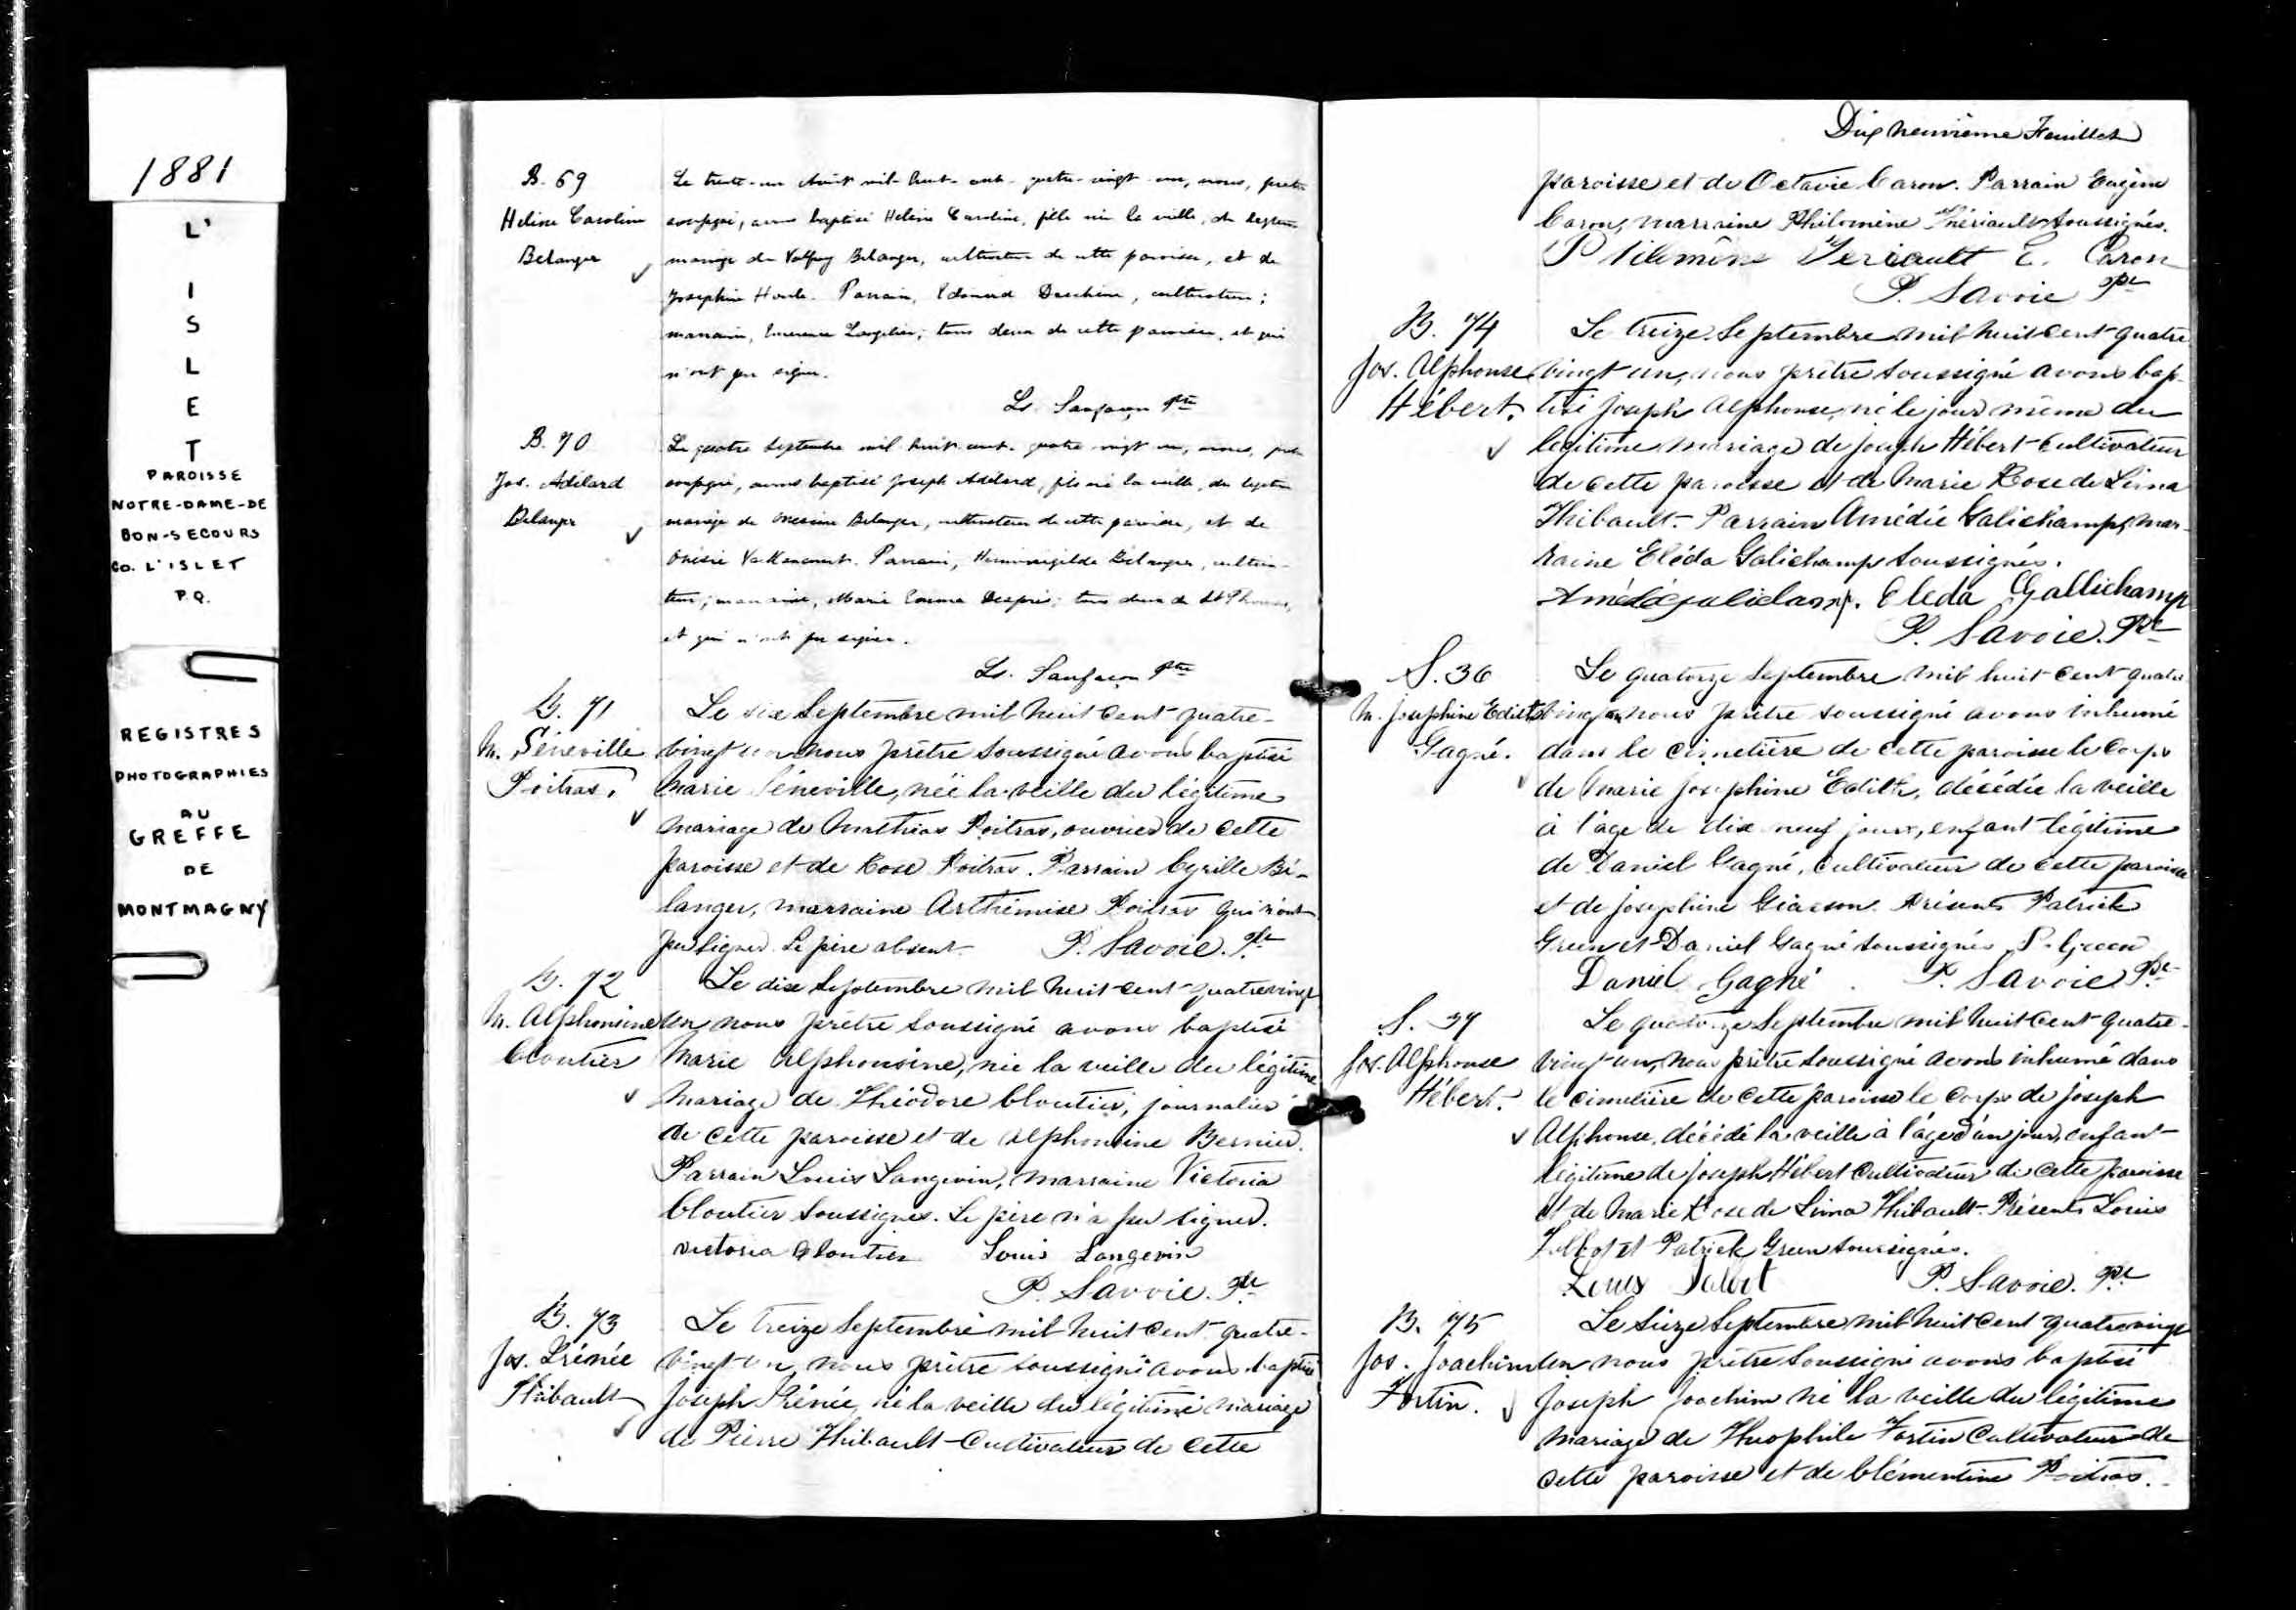 1881
L'
I
S
L
E
T
PAROISSE
NOTRE-DAME-DE
BON-SECOURS
Co. L'ISLET
P.Q.
REGISTRES
PHOTOGRAPHIES
AU
GREFFE
DE
MONTMAGNY
B. 69
Heline Caroline
Belanger
Le trente-un Août mil-huit-cent-quatre-vingt-un, nous, prêtre
soussigné, avons baptisé Heline Caroline, fille née la veille, du légitime
mariage de Belanger, cultivateur de cette paroisse, et de
Josephine Houle. Parrain, Edouard Duchêne, cultivateur;
marraine, Emerence Langelier; tous deux de cette paroisse, et qui
n'ont pu signer.
Ls. Sanfaçon Ptre
B. 70
Jos. Adélard
Belanger
Le quatre Septembre mil-huit-cent-quatre-vingt-un, nous, prêtre
soussigné, avons baptisé Joseph Adélard, fils né la veille, du légitime
mariage de Onesime Belanger, cultivateur de cette paroisse, et de
Onésie Vaillancourt. Parrain, Herménégilde Bélanger, cultiva-
teur; marraine, Marie Emma Després; tous deux de
et qui n'ont pu signer.
Ls. Sanfaçon Ptre
B. 71
M. Séneville
Poitras.
Le six Septembre mil huit cent quatre-
vingt un nous prêtre soussigné avons baptisé
Marie Séneville, née la veille du légitime
mariage de Mathias Poitras, ouvrier de cette
paroisse et de Rose Poitras. Parrain Cyrille Bé-
langer, marraine Arthémise Poitras qui n'ont
pu signer. Le père absent. P. Savoie. Ptre
B. 72
M. Alphonsine
Cloutier
Le dix Septembre mil huit cent quatrevingt
un nous prêtre soussigné avons baptisé
Marie Alphonsine, née la veille du légitime
mariage de Théodore Cloutier, journalier
de cette paroisse et de Alphonsine Bernier.
Parrain Louis Langevin, marraine Victoria
Cloutier soussignés. Le père n'a pu signer.
Victoria Cloutier Louis Langevin
P. Savoie. Ptre
B. 73
Jos. Irénée
Thibault
Le treize Septembre mil huit cent quatre-
vingt-un, nous prêtre soussigné avons baptisé
Joseph Irénée, né la veille du légitime mariage
de Pierre Thibault Cultivateur de cette
Dix neuvième Feuillet
paroisse et de Octavie Caron. Parrain Eugène
Caron, marraine Philomène Thériault soussignés.
Philomène Teriault E. Caron
P. Savoie Ptre
B. 74
Jos. Alphonse
Hébert.
Le treize Septembre mil huit cent quatre
vingt un, nous prêtre soussigné avons bap-
tisé Joseph Alphonse, né le jour même du
légitime mariage de Joseph Hébert Cultivateur
de cette paroisse et de Marie Rose de Lima
Thibault. Parrain Amédée Galichamp, mar-
raine Eléda Galichamp soussignés.
Amédé galichamp. Eleda Gallichamp
P. Savoie. Ptre
S. 36
M. Josephine Edith
Gagné.
Le quatorze Septembre mil huit cent quatre
vingt un nous prêtre soussigné avons inhumé
dans le cimetière de cette paroisse le corps
de Marie Josephine Edith, décédée la veille
à l'âge de dix neuf jours, enfant légitime
de Daniel Gagné, cultivateur de cette paroisse
et de Josephine Giasson. Présents Patrick
Green et Daniel Gagné soussignés P. Green
Daniel Gagné . P. Savoie Ptre
S. 37
Jos. Alphonse
Hébert.
Le quatorze Septembre mil huit cent quatre-
vingt un, nous prêtre soussigné avons inhumé dans
le cimetière de cette paroisse le corps de Joseph
Alphonse, décédé la veille à l'âge d'un jour, enfant
légitime de Joseph Hébert Cultivateur de cette paroisse
et de Marie Rose de Lima Thibault. Présents Louis
Talbot et Patrick Green soussignés.
Louis Talbot P. Savoie. Ptre
B. 75
Jos. Joachim
Fortin.
Le Seize Septembre mil huit cent quatrevingt
un nous prêtre soussigné avons baptisé
Joseph Joachim né la veille du légitime
mariage de Theophile Fortin Cultivateur de
cette paroisse et de Clémentine Poitras.